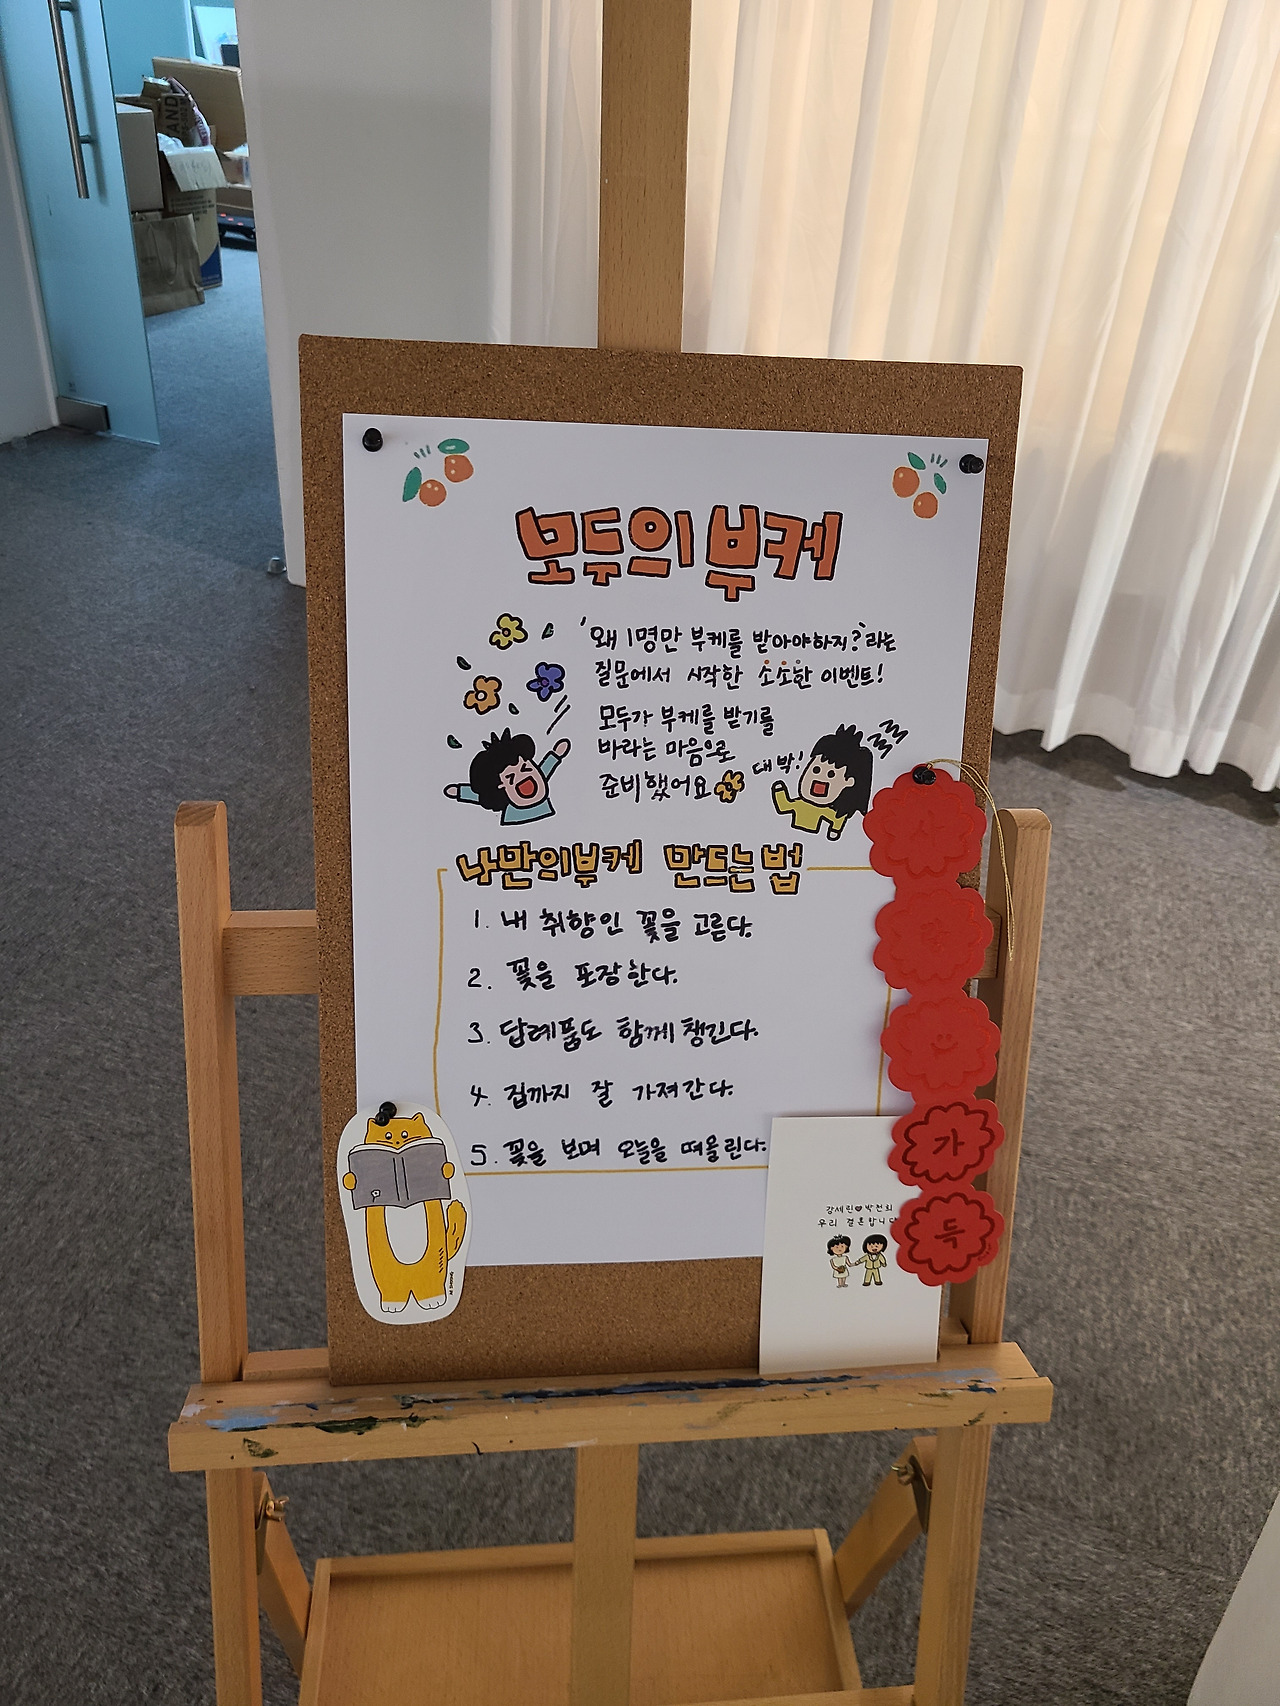 모두의 부케
'왜 1명만 부케를 받아야하지?'라는
질문에서 시작한 소소한 이벤트!
모두가 부케를 받기를
바라는 마음으로
준비했어요
대박!
나만의부케 만드는 법
1. 내 취향인 꽃을 고른다.
2. 꽃을 포장한다.
3. 답례품도 함께 챙긴다.
4. 집까지 잘 가져간다.
5. 꽃을 보며 오늘을 떠올린다.
사
랑
가
득
우리 결혼합니다
AND